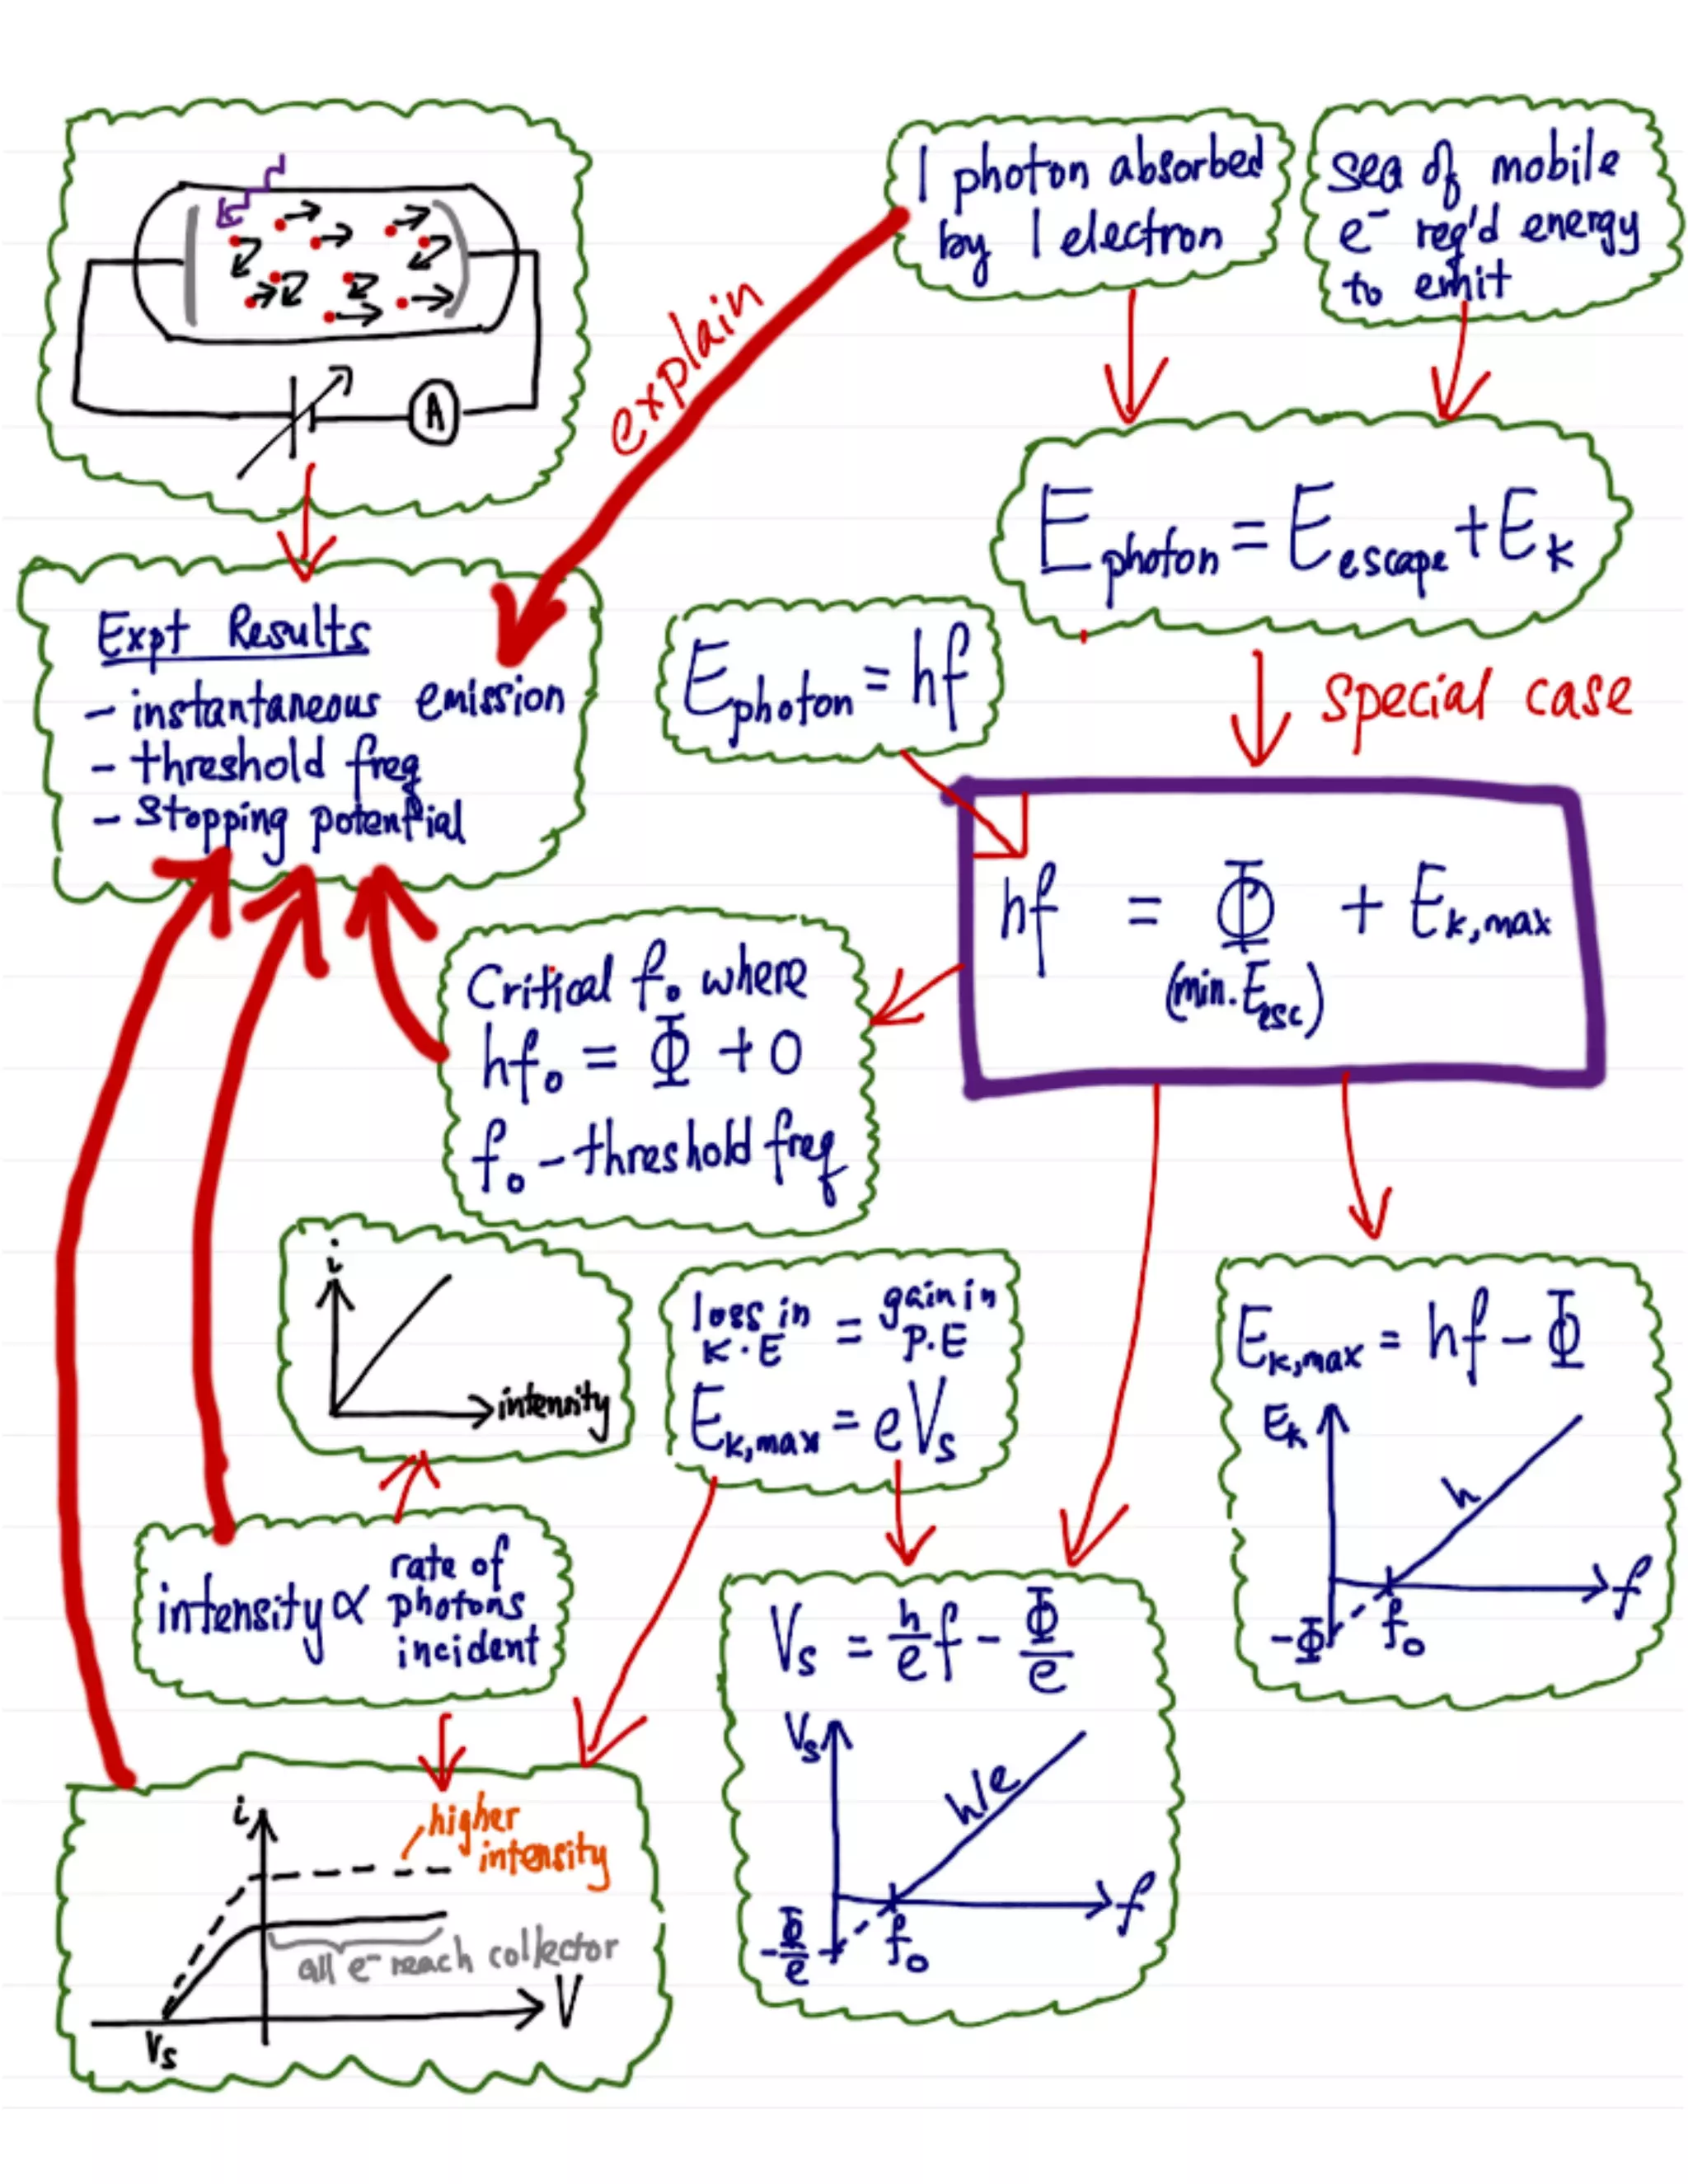 A
1 photon absorbed
by 1 electron
sea of mobile
e⁻ req'd energy
to emit
explain
E photon = E escape + E k
Expt Results
- instantaneous emission
- threshold freq
- stopping potential
E photon = hf
special case
hf = Φ + E k,max
(min. E esc)
Critical f₀ where
hf₀ = Φ + 0
f₀ - threshold freq
i
intensity
loss in K.E = gain in P.E
E k,max = eVs
E k,max = hf - Φ
Ek
h
f
-Φ
f₀
intensity ∝ rate of
photons
incident
Vs = h/e f - Φ/e
Vs
h/e
f
-Φ/e
f₀
i
higher
intensity
all e⁻ reach collector
V
Vs